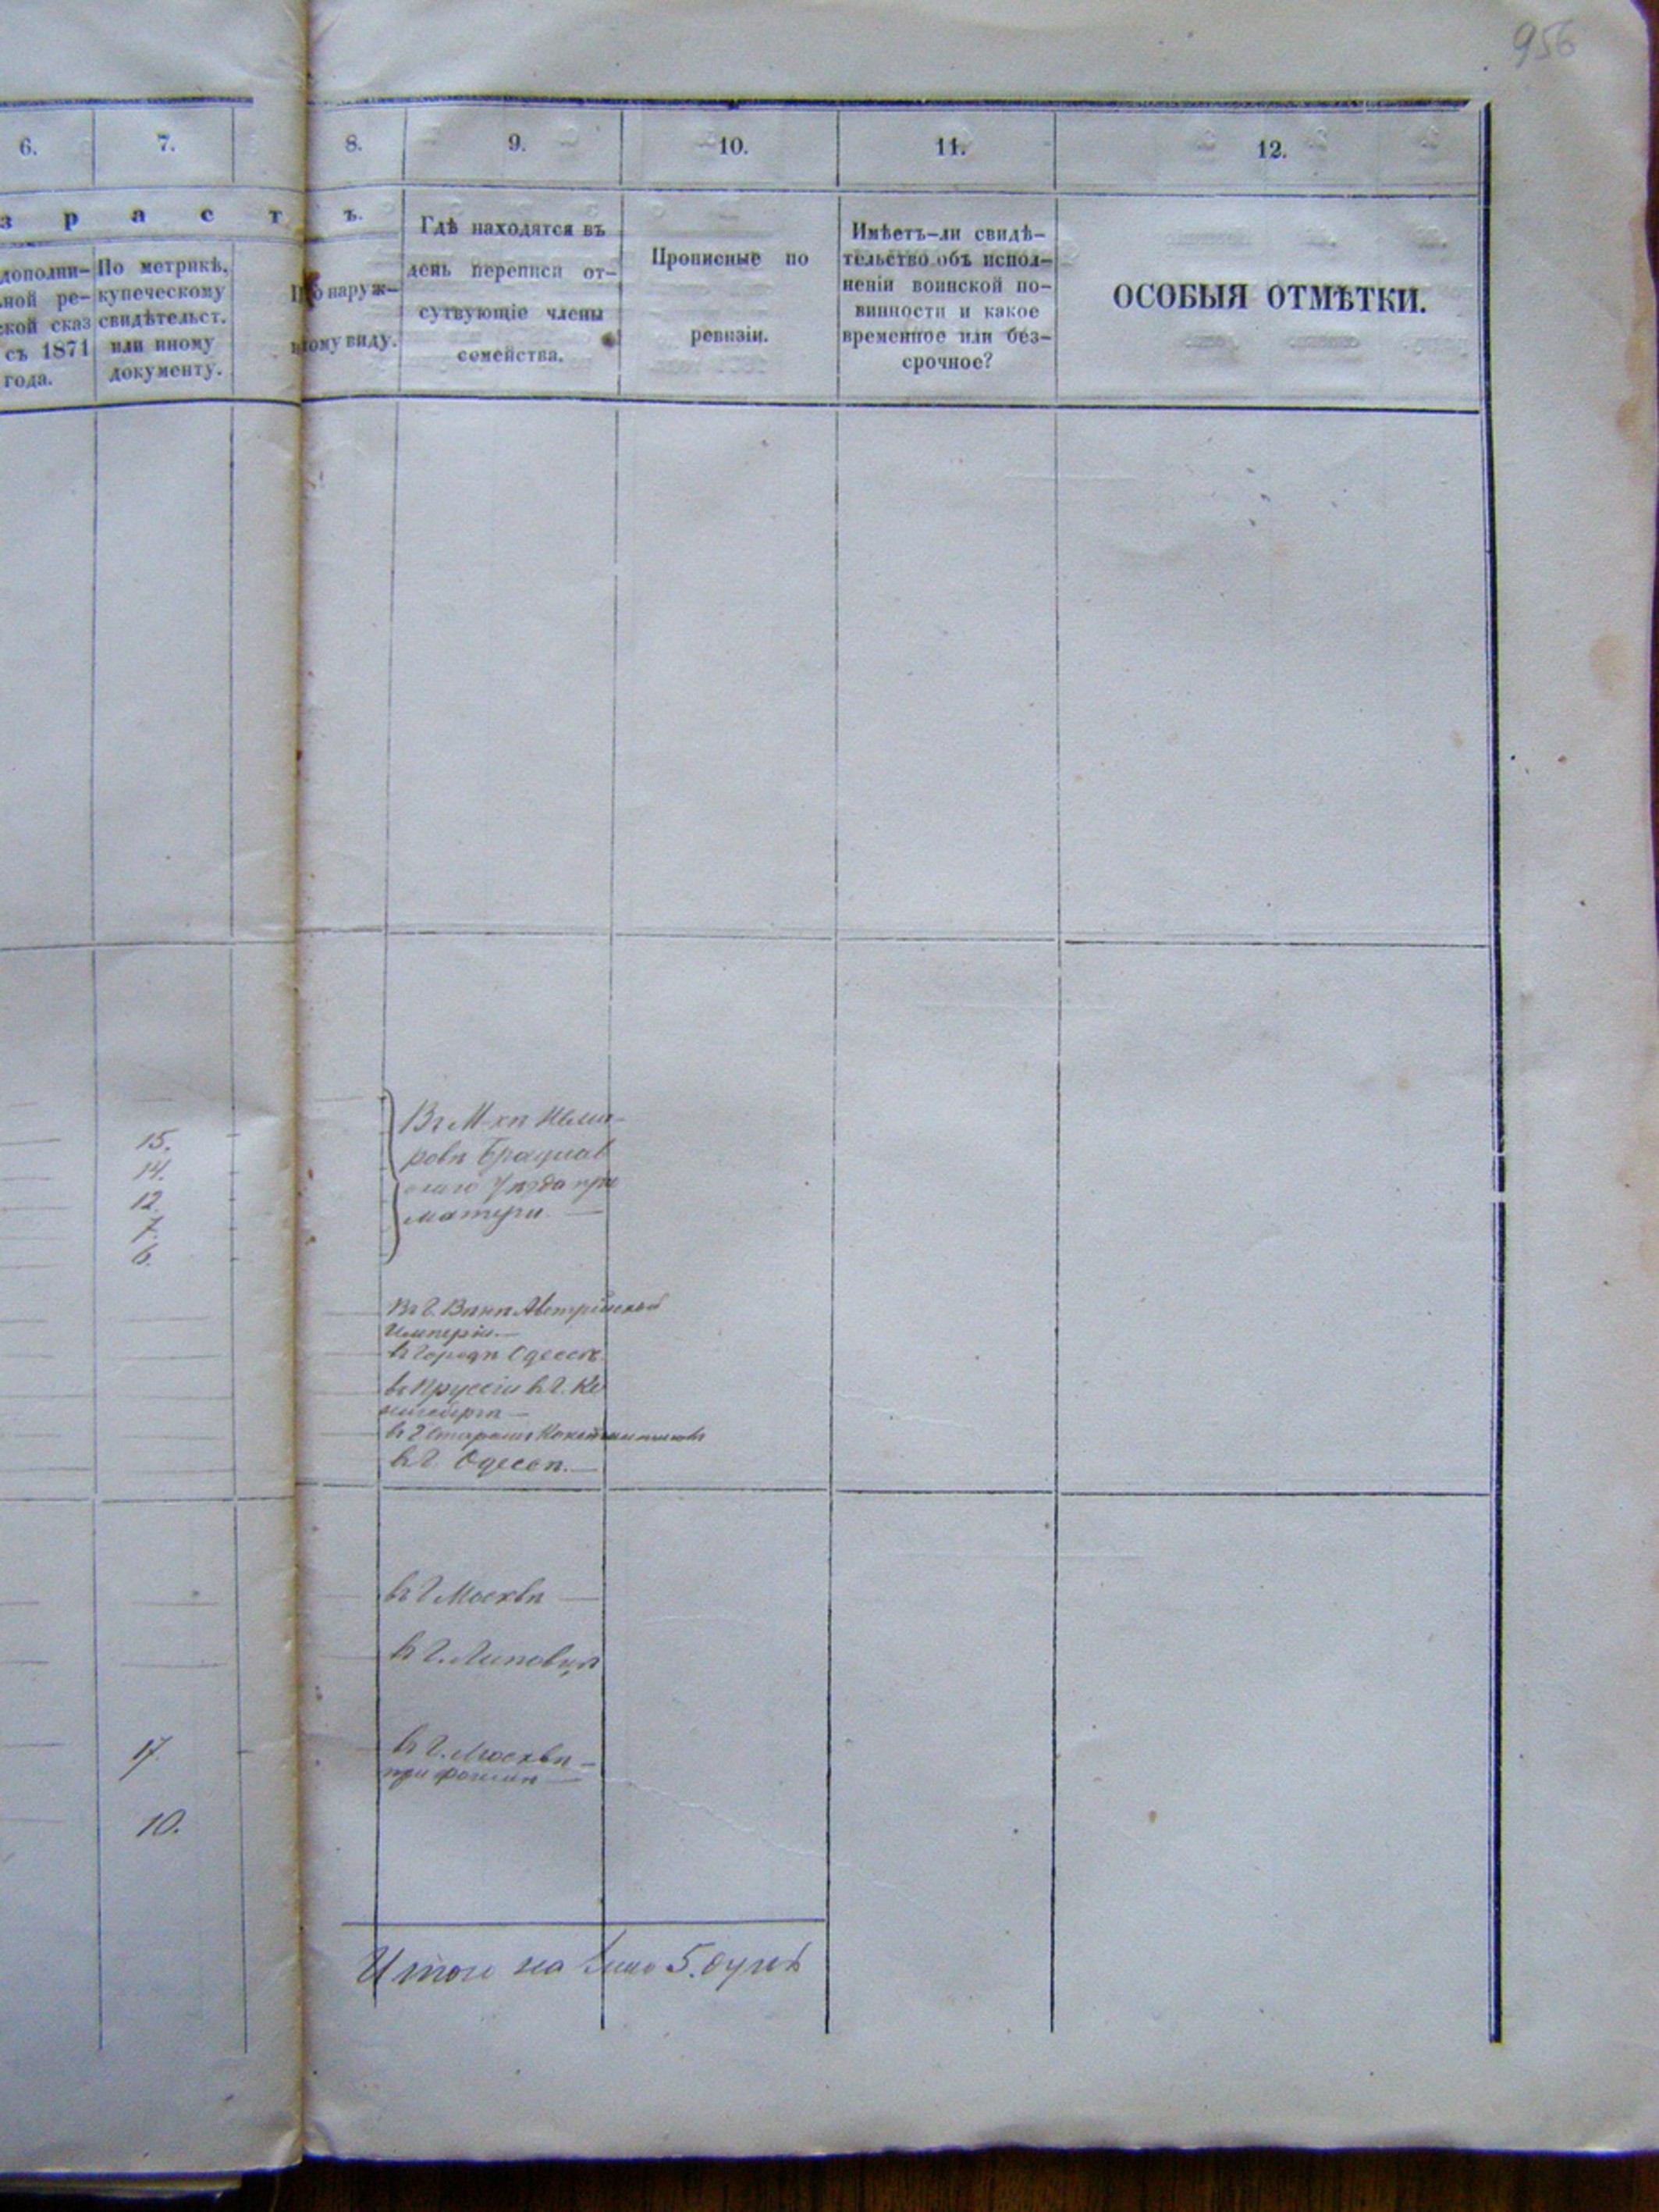 956
6. 7. 8. 9. 10. 11. 12.
з р а с т ъ.
дополни-
ной ре-
ской сказ
съ 1871
года.
По метрикѣ,
купеческому
свидѣтельст.
или иному
документу.
По наруж-
ному виду.
Гдѣ находятся въ
день переписи от-
сутвующіе члены
семейства.
Прописные по
ревизіи.
Имѣетъ-ли свидѣ-
тельство объ испол-
неніи воинской по-
винности и какое
временное или без-
срочное?
ОСОБЫЯ ОТМѢТКИ.
15.
14.
12.
7.
6.
Въ М-кѣ Неми-
ровѣ Брацлав
скаго Уѣзда при
матери.
Въ Г. Вѣнѣ Австрійской
Имперіи.
въ Городѣ Одессѣ.
въ Пруссіи въ Г. Ке
нигсбергѣ
въ Г. Старомъ Константиновѣ
въ Г. Одессѣ.
въ Г. Москвѣ
въ Г. Липовцѣ
17.
въ Г. Москвѣ
при
10.
Итого на лицо 5. душъ